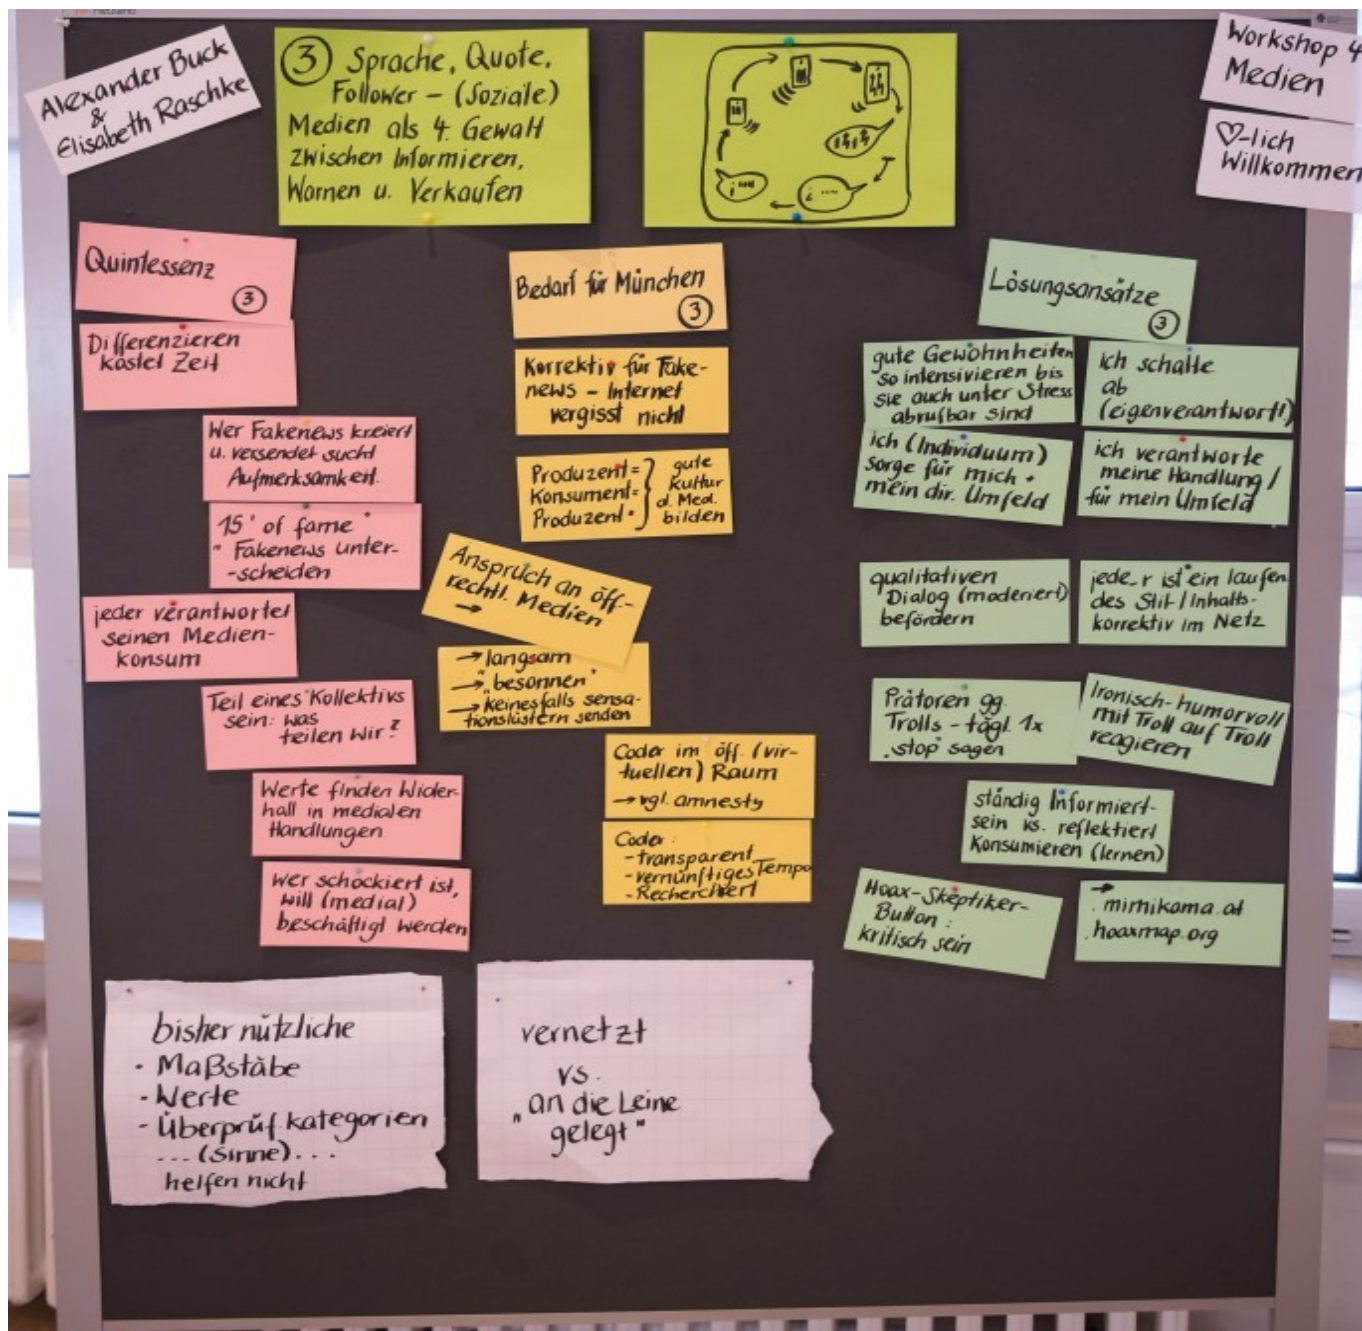 Alexander Buck
&
Elisabeth Raschke
③ Sprache, Quote,
Follower – (Soziale)
Medien als 4. Gewalt
zwischen Informieren,
Warnen u. Verkaufen
Workshop 4
Medien
♡-lich
Willkommen
Quintessenz
③
Differenzieren
kostet Zeit
Wer Fakenews kreiert
u. versendet sucht
Aufmerksamkeit.
15' of fame "
" Fakenews unter-
-scheiden
jeder verantwortet
seinen Medien-
konsum
Teil eines Kollektivs
sein: was
teilen wir?
Werte finden Wider-
hall in medialen
Handlungen
Wer schockiert ist,
will (medial)
beschäftigt werden
bisher nützliche
- Maßstäbe
- Werte
- Überprüf.kategorien
... (Sinne) ...
helfen nicht
Bedarf für München
③
Korrektiv für Fake-
news – Internet
vergisst nicht
Produzent = } gute
Konsument = } Kultur
Produzent • } d. Med.
bilden
Anspruch an öff-
rechtl. Medien
→
→ langsam
→ "besonnen"
→ keinesfalls sensa-
tionslüstern senden
Coder im öff. (vir-
tuellen) Raum
→ vgl. amnesty
Coder:
- transparent
- vernünftiges Tempo
- Recherchiert
vernetzt
vs.
„an die Leine
gelegt"
Lösungsansätze
③
gute Gewohnheiten
so intensivieren bis
sie auch unter Stress
abrufbar sind
ich schalte
ab
(eigenverantwortl)
ich (Individuum)
sorge für mich +
mein dir. Umfeld
ich verantworte
meine Handlung /
für mein Umfeld
qualitativen
Dialog (moderiert)
befördern
jede_r ist ein laufen
des Stil-/Inhalts-
korrektiv im Netz
Prätoren gg.
Trolls – tägl. 1x
„stop" sagen
Ironisch-humorvoll
mit Troll auf Troll
reagieren
ständig Informiert-
sein vs. reflektiert
Konsumieren (lernen)
Hoax-Skeptiker-
Button:
kritisch sein
→
. mimikama.at
. hoaxmap.org